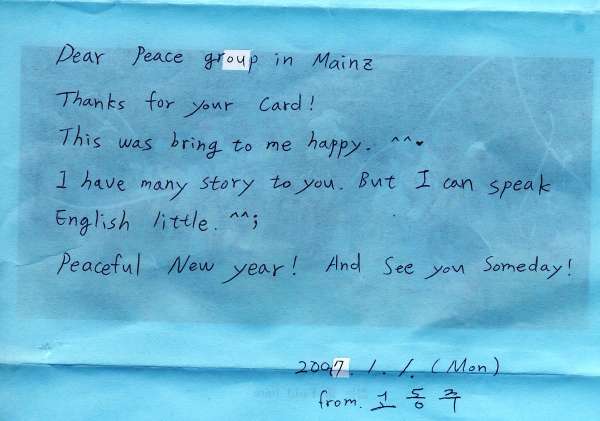 Dear Peace group in Mainz
Thanks for your Card!
This was bring to me happy. ^^♥
I have many story to you. But I can speak
English little. ^^;
Peaceful New year! And See you Someday!
2007. 1. 1. (Mon)
from. 고동주